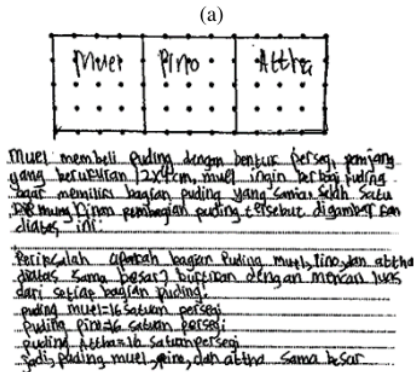 (a)
Muel Pino Attha
Muel membeli puding dengan bentuk persegi panjang
yang berukuran 12x4cm, muel ingin berbagi puding
agar memiliki bagian puding yang sama. salah satu
pembagian puding tersebut digambarkan
diatas ini.
Periksalah apakah bagian Puding muel, Pino, dan attha
diatas sama besar? buktikan dengan mencari luas
dari setiap bagian puding!
puding muel=16 satuan persegi
puding Pino=16 satuan persegi
puding Attha=16 satuan persegi
jadi, puding muel, pino, dan attha sama besar